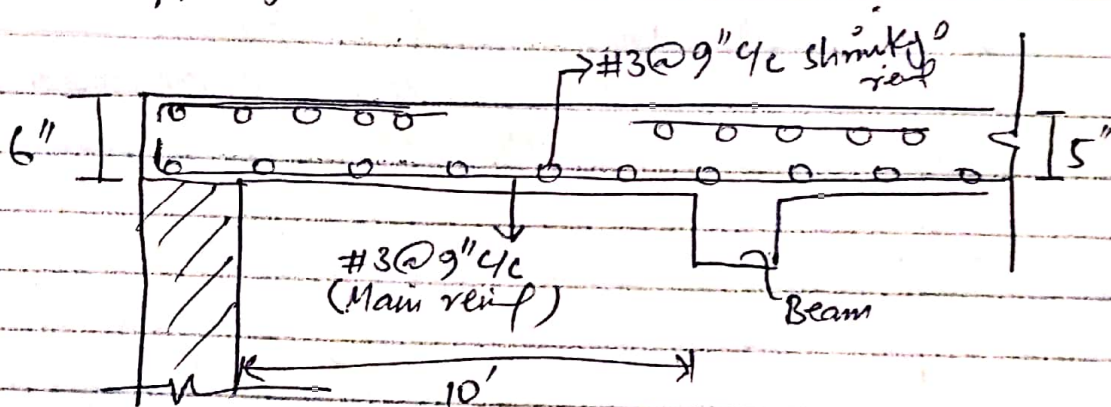 #3@9" c/c shrinkg
reinf
6"
5"
#3@9" c/c
(Main reinf)
Beam
10'